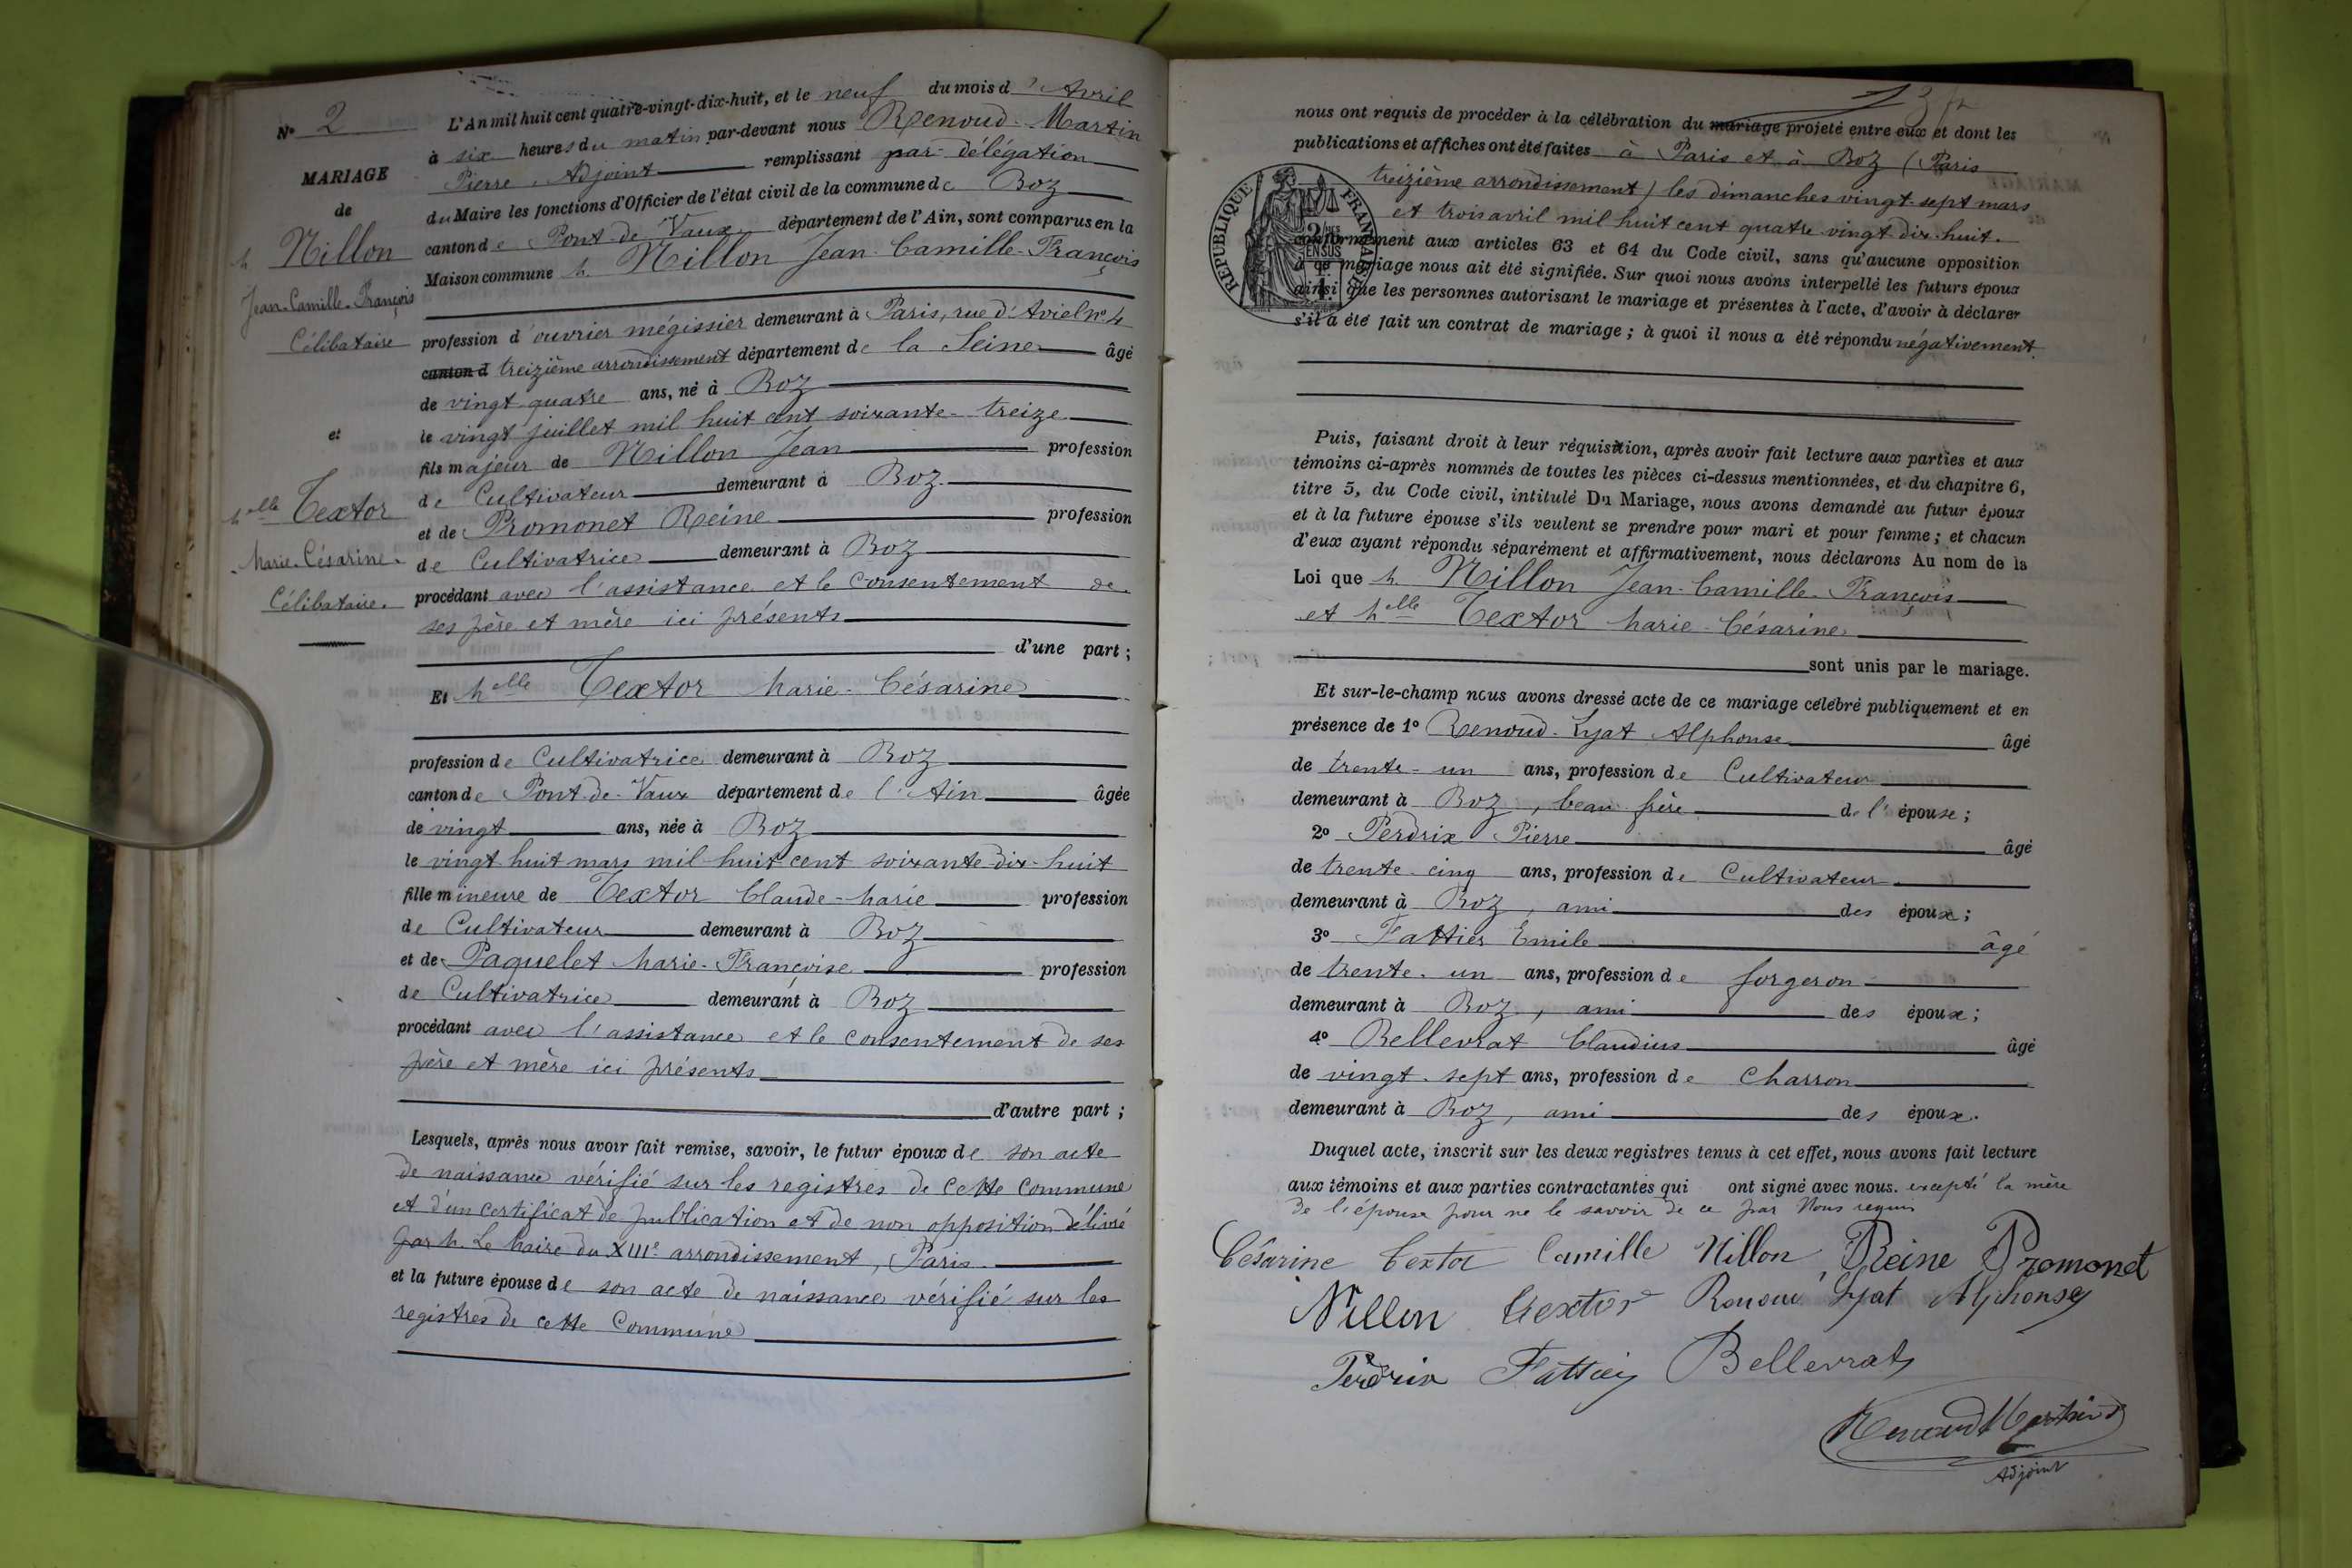 N° 2
MARIAGE
de
M. Nillon
Jean-Camille-François
Célibataire
et
Melle Textor
Marie-Césarine
Célibataire.
L'An mil huit cent quatre-vingt-dix-huit, et le neuf du mois d'Avril
à six heures du matin par-devant nous Renoud-Martin
Pierre, Adjoint remplissant par délégation
du Maire les fonctions d'Officier de l'état civil de la commune de Boz
canton de Pont-de-Vaux département de l'Ain, sont comparus en la
Maison commune M. Nillon Jean-Camille-François
profession d'ouvrier mégissier demeurant à Paris, rue d' n° 4
canton d treizième arrondissement département de la Seine âgé
de vingt quatre ans, né à Boz
le vingt juillet mil huit cent soixante-treize
fils majeur de Nillon Jean profession
de Cultivateur demeurant à Boz
et de Promonet Reine profession
de Cultivatrice demeurant à Boz
procédant avec l'assistance et le consentement de
ses père et mère ici présents
d'une part ;
Et Melle Textor Marie-Césarine
profession de Cultivatrice demeurant à Boz
canton de Pont-de-Vaux département de l'Ain âgée
de vingt ans, née à Boz
le vingt huit mars mil huit cent soixante-dix-huit
fille mineure de Textor Claude-Marie profession
de Cultivateur demeurant à Boz
et de Paquelet Marie-Françoise profession
de Cultivatrice demeurant à Boz
procédant avec l'assistance et le consentement de ses
père et mère ici présents
d'autre part ;
Lesquels, après nous avoir fait remise, savoir, le futur époux de son acte
de naissance vérifié sur les registres de cette commune
et d'un certificat de publication et de non opposition délivré
par M. Le Maire du XIIIe arrondissement, Paris
et la future épouse de son acte de naissance vérifié sur les
registres de cette Commune
nous ont requis de procéder à la célébration du mariage projeté entre eux et dont les
publications et affiches ont été faites à Paris et à Boz (Paris
treizième arrondissement) les dimanches vingt-sept mars
et trois avril mil huit cent quatre-vingt dix-huit.
REPUBLIQUE FRANÇAISE
conformément aux articles 63 et 64 du Code civil, sans qu'aucune opposition
à ce mariage nous ait été signifiée. Sur quoi nous avons interpellé les futurs époux
ainsi que les personnes autorisant le mariage et présentes à l'acte, d'avoir à déclarer
s'il a été fait un contrat de mariage ; à quoi il nous a été répondu négativement.
Puis, faisant droit à leur réquisition, après avoir fait lecture aux parties et aux
témoins ci-après nommés de toutes les pièces ci-dessus mentionnées, et du chapitre 6,
titre 5, du Code civil, intitulé Du Mariage, nous avons demandé au futur époux
et à la future épouse s'ils veulent se prendre pour mari et pour femme ; et chacun
d'eux ayant répondu séparément et affirmativement, nous déclarons Au nom de la
Loi que M. Nillon Jean-Camille-François
et Melle Textor Marie-Césarine
sont unis par le mariage.
Et sur-le-champ nous avons dressé acte de ce mariage célébré publiquement et en
présence de 1° Renoud-Lyat Alphonse âgé
de trente-un ans, profession de Cultivateur
demeurant à Boz, beau-frère de l'épouse ;
2° Perdrix Pierre âgé
de trente-cinq ans, profession de Cultivateur
demeurant à Boz, ami des époux ;
3° Fattier Emile âgé
de trente-un ans, profession de forgeron
demeurant à Boz, ami des époux ;
4° Bellevrat Claudius âgé
de vingt-sept ans, profession de Charron
demeurant à Boz, ami des époux.
Duquel acte, inscrit sur les deux registres tenus à cet effet, nous avons fait lecture
aux témoins et aux parties contractantes qui ont signé avec nous. excepté la mère
de l'épouse pour ne le savoir de ce par Nous requis
Césarine Textor Camille Nillon Reine Promonet
Nillon Textor Renoud Lyat Alphonse
Perdrix Fattier Bellevrat
Renoud Martin
Adjoint